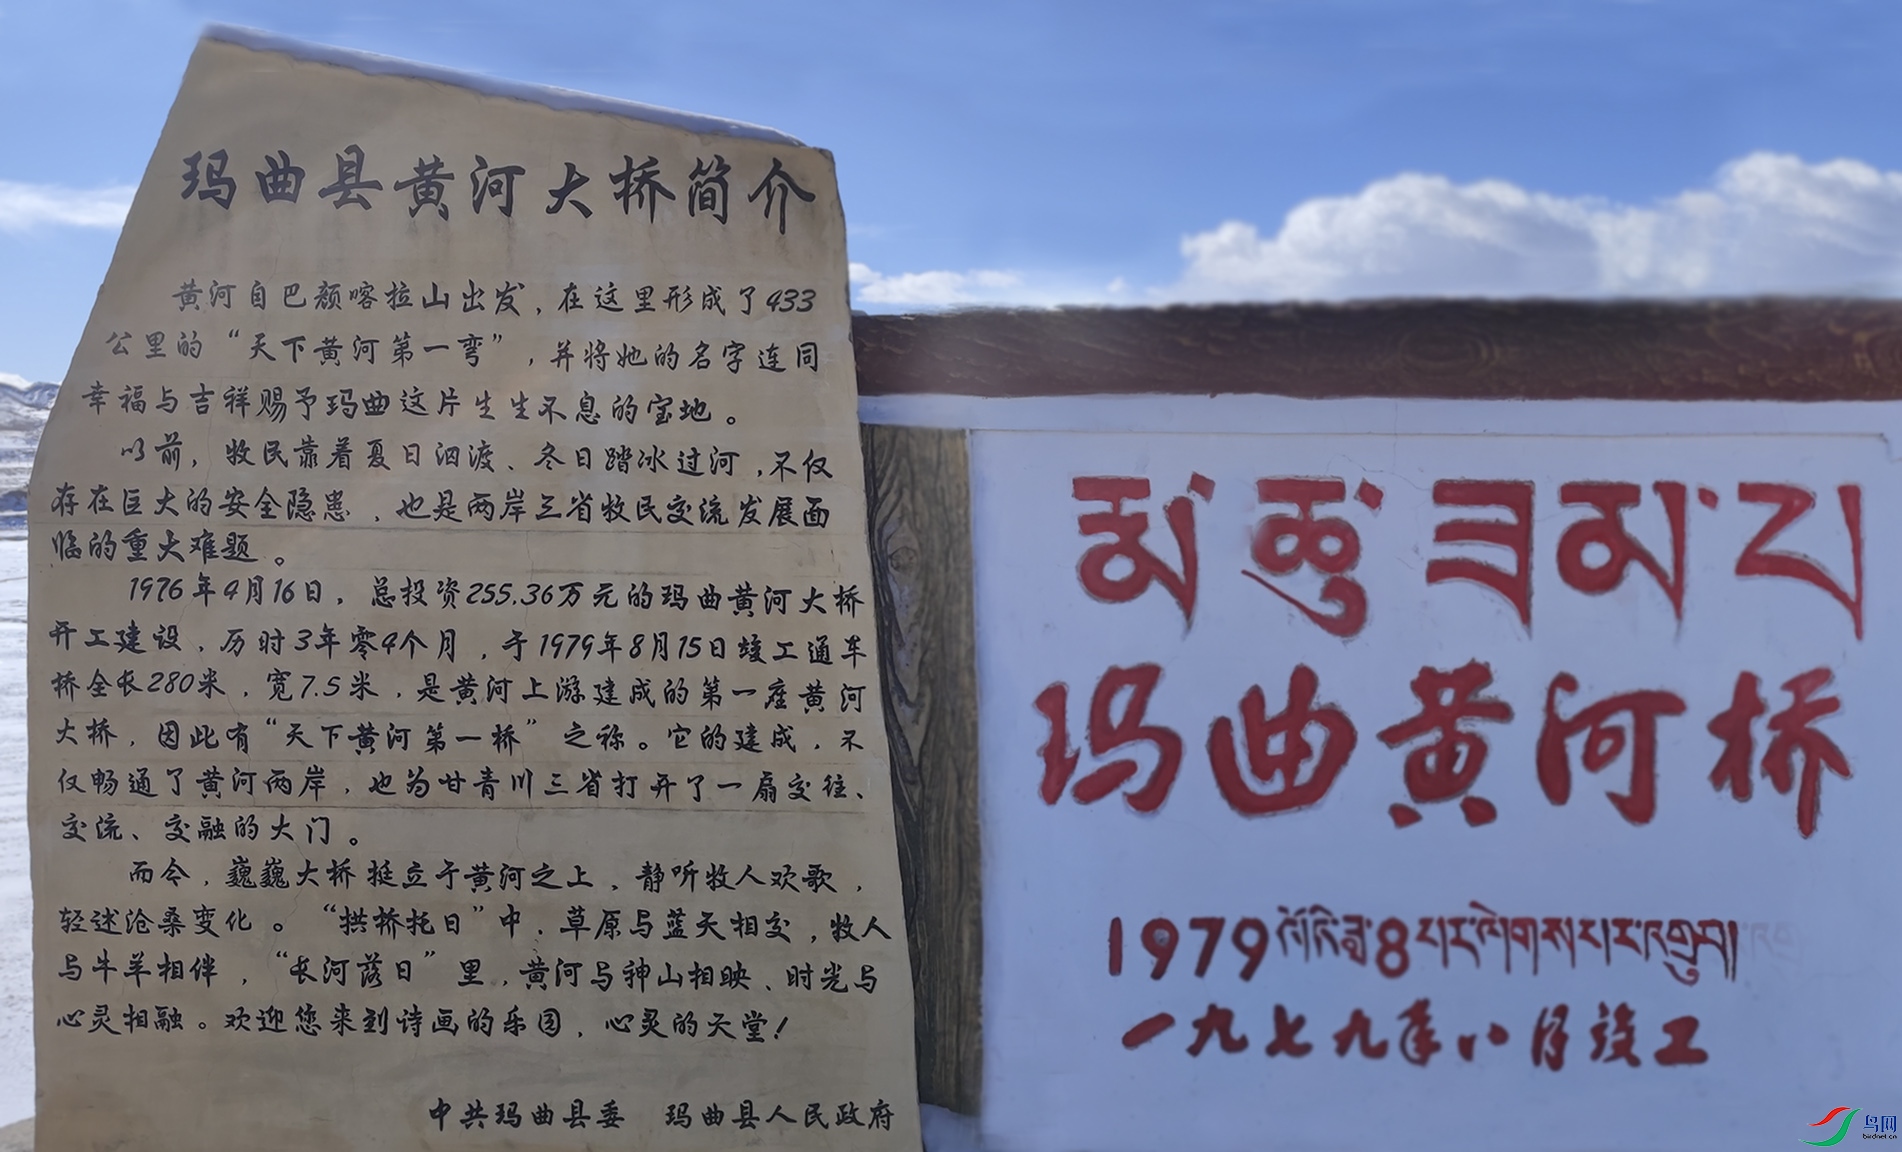 玛曲县黄河大桥简介
黄河自巴颜喀拉山出发，在这里形成了433
公里的“天下黄河第一弯”，并将她的名字连同
幸福与吉祥赐予玛曲这片生生不息的宝地。
以前，牧民靠着夏日泅渡、冬日踏冰过河，不仅
存在巨大的安全隐患，也是两岸三省牧民交流发展面
临的重大难题。
1976年4月16日，总投资255.36万元的玛曲黄河大桥
开工建设，历时3年零4个月，于1979年8月15日竣工通车
桥全长280米，宽7.5米，是黄河上游建成的第一座黄河
大桥，因此有“天下黄河第一桥”之称。它的建成，不
仅畅通了黄河两岸，也为甘青川三省打开了一扇交往、
交流、交融的大门。
而今，巍巍大桥挺立于黄河之上，静听牧人欢歌，
轻述沧桑变化。“拱桥托日”中，草原与蓝天相交，牧人
与牛羊相伴，“长河落日”里，黄河与神山相映、时光与
心灵相融。欢迎您来到诗画的乐园，心灵的天堂！
中共玛曲县委 玛曲县人民政府
མ་ཆུ་ཟམ་པ
玛曲黄河桥
1979ལོའི་ཟླ་8པར་ལེགས་པར་འགྲུབ།
一九七九年八月竣工
鸟网
birdnet.cn